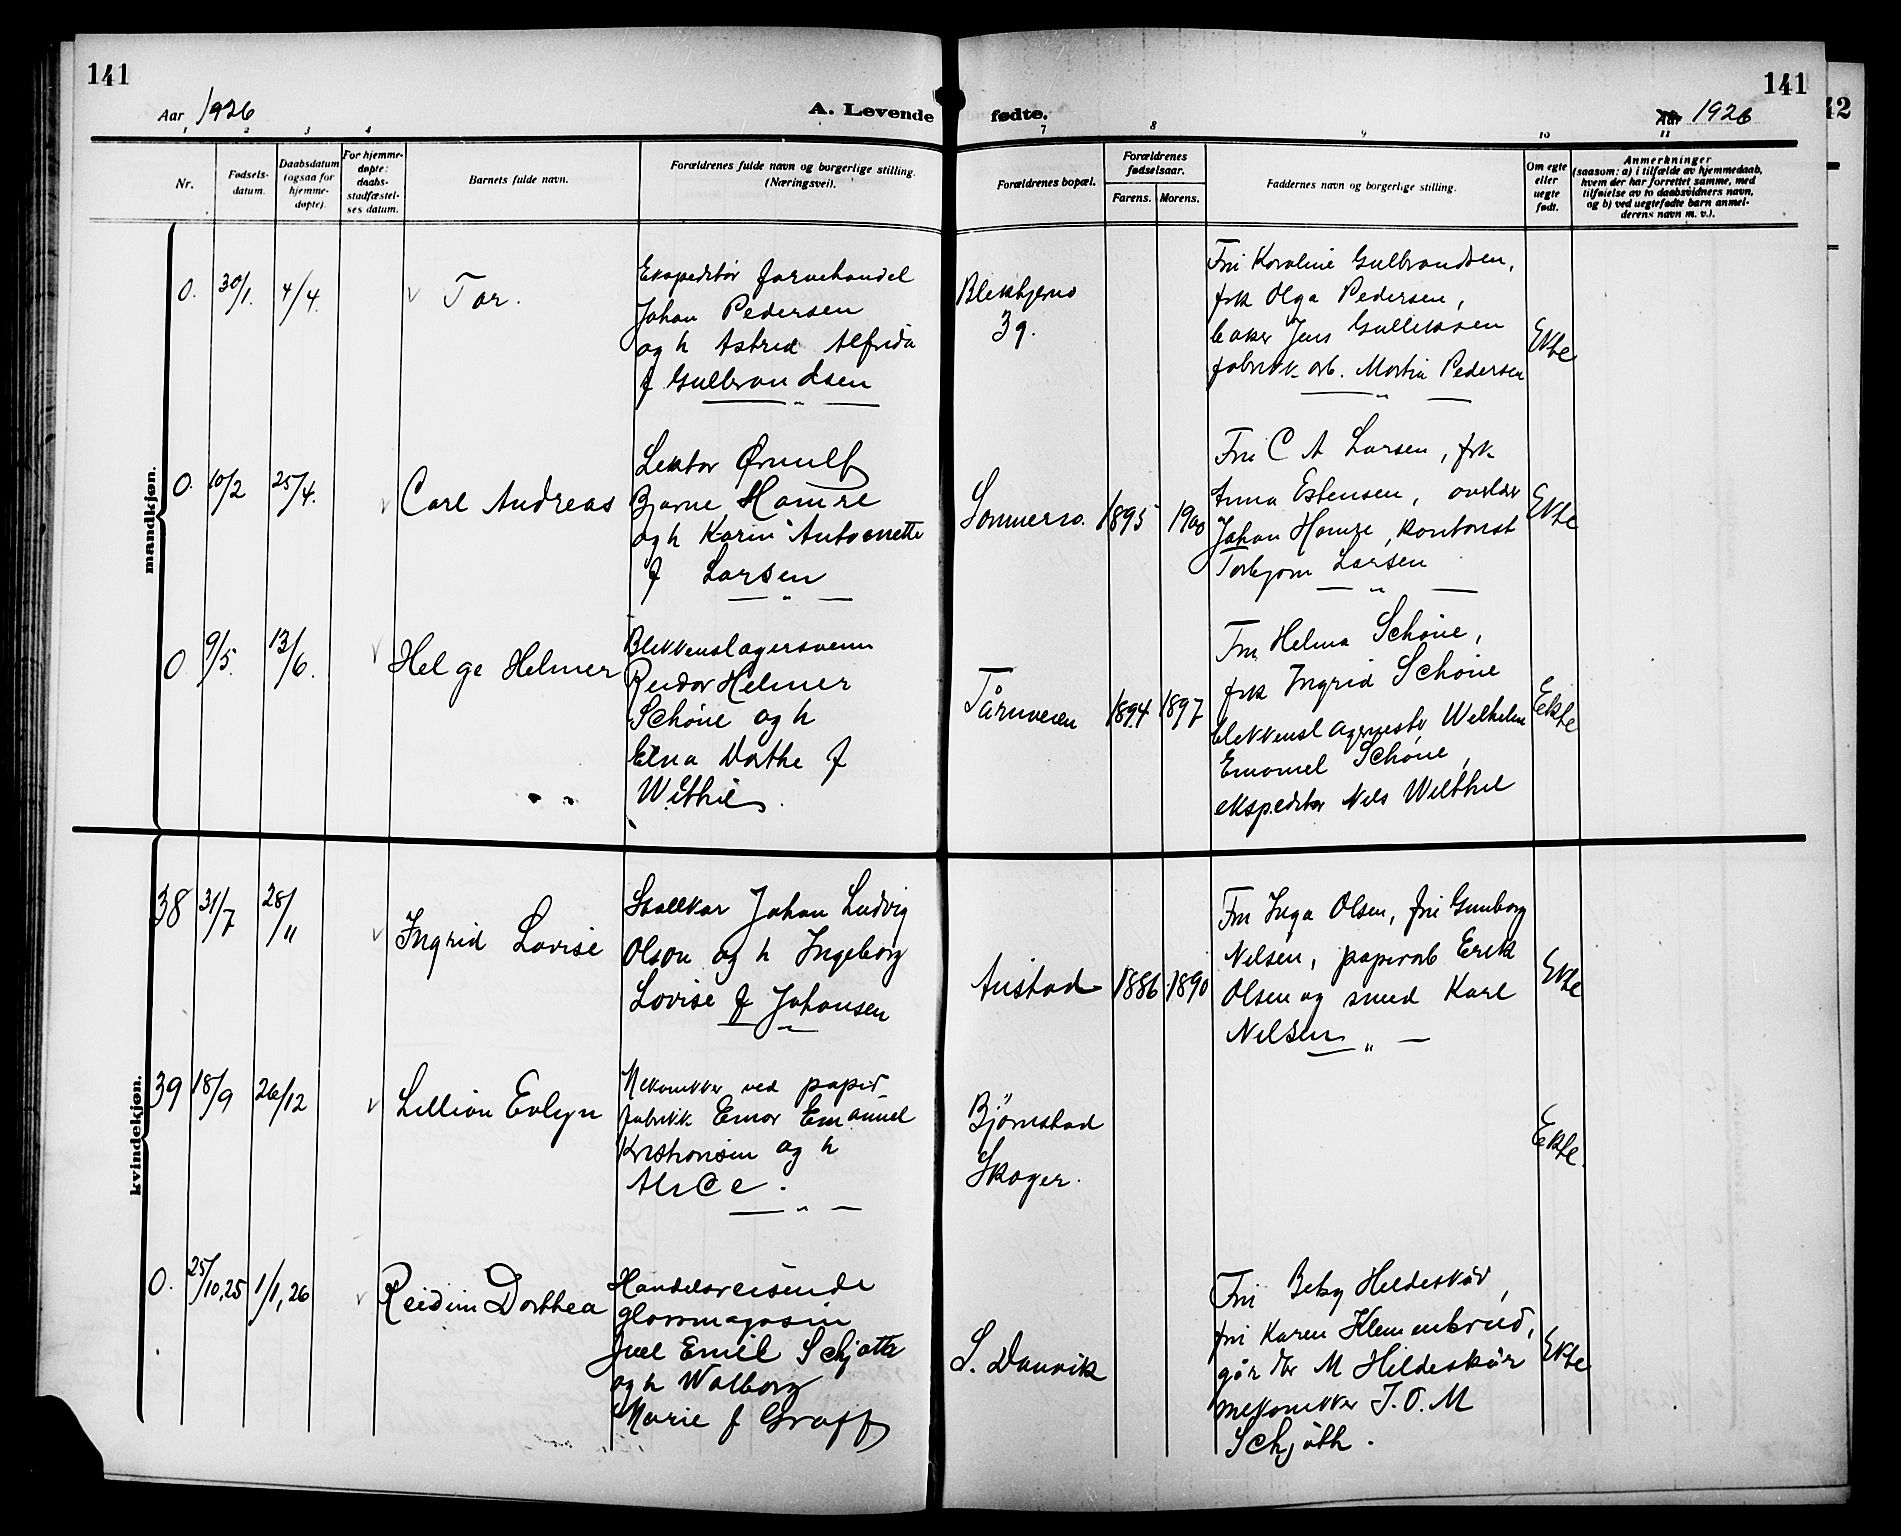 141
141
42
Aar 1926
A. Levende fødte.
Aar 1926
1 2 3 4 7 8 9 10 11
Nr.
Fødsels-
datum.
Daabsdatum
(ogsaa for
hjemme-
døpte).
For hjemme-
døpte:
daabs-
stadfæstel-
ses datum.
Barnets fulde navn.
Forældrenes fulde navn og borgerlige stilling.
(Næringsvei).
Forældrenes bopæl.
Forældrenes
fødselsaar.
Farens. Morens.
Faddernes navn og borgerlige stilling.
Om egte
eller
uegte
født.
Anmerkninger
(saasom: a) i tilfælde av hjemmedaab,
hvem der har forrettet samme, med
tilføielse av to daabsvidners navn,
og b) ved uegtefødte barn anmel-
derens navn m. v.).
mandkjøn.
0. 30/1. 4/4. Tor.
Ekspeditør farvehandel
Johan Pedersen
og h Astrid Alfrida
f Gulbrandsen
Blekkhjerno
39.
Fru Karoline Gulbrandsen,
frk Olga Pedersen,
baker Jens Gulliksen
fabrikk arb. Martin Pedersen
Ekte
0. 10/2 25/4. Carl Andreas
Lektor Ørnulf
Bjarne Hamre
og h Karin Antoinette
f Larsen
1895 1900
Fru C A Larsen, frk
Anna Estensen, overlær
Johan Hamre, kontorist
Torbjørn Larsen
Ekte
0 9/5. 13/6. Helge Helmer
Blikkenslagersvenn
Reidar Helmer
Schøne og h
Elna Dorthe f
Wilthil.
Tårnveien
1894 1897
Fru Helma Schøne,
frk Ingrid Schøne
blikkenslagermester Wilhelm
Emanuel Schøne,
ekspeditør Nils Wilthil
Ekte
kvindekjøn.
38 31/7 28/11 Ingrid Lovise
Stallkar Johan Ludvig
Olsen og h Ingeborg
Lovise f Johansen
Austad
1886 1890
Fru Inga Olsen, fru Gunborg
Nilsen, papirarb Erik
Olsen og smed Karl
Nilsen
Ekte
39 18/9 26/12 Lillian Evlyn
Mekanikker ved papir
fabrikk Einar Emanuel
Kristiansen og h
Alice.
Bjørnstad
Skoger.
Ekte.
0. 25/10,25 1/1,26 Reidun Dorthea
Handelsreisende
glassmagasin
Juel Emil Schjøtt
og h Walborg
Marie f Graff
S. Danvik
Fru Betsy Hildeskår,
fru Karen Klemenbrud,
gårdbr M Hildeskår
mekanikker J. O. M
Schjøth.
Ekte